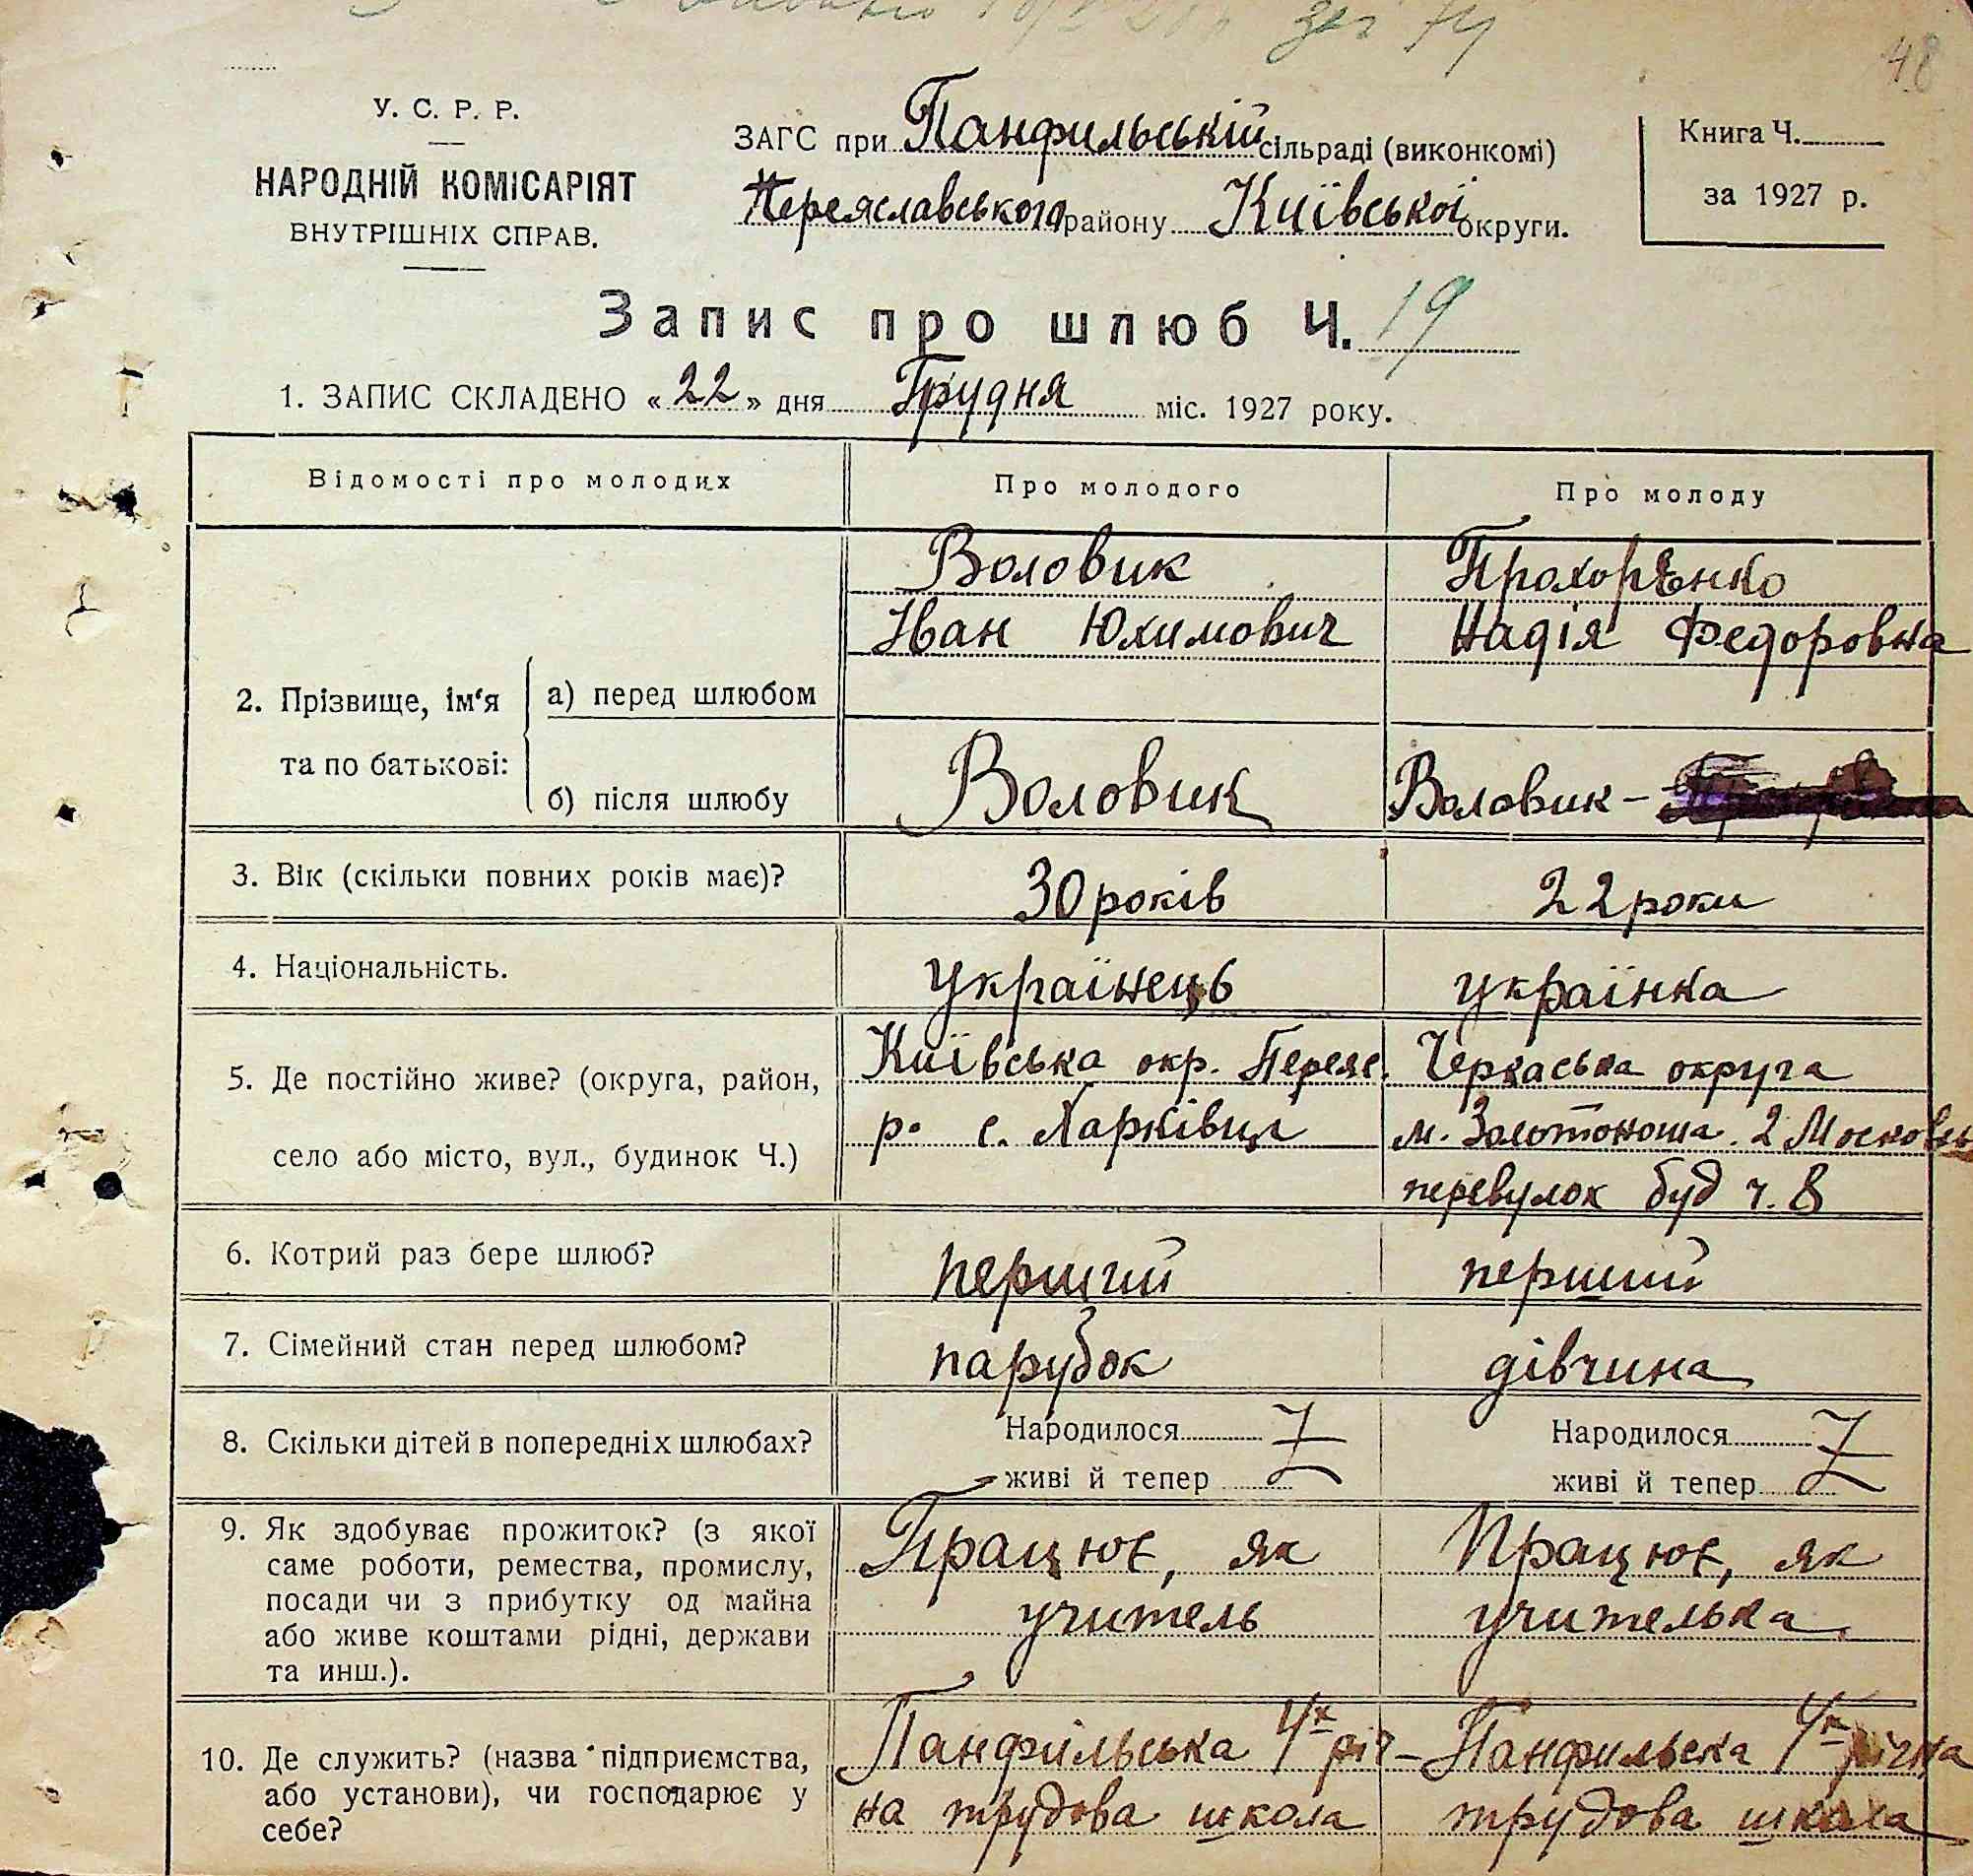 48
У. С. Р. Р.
НАРОДНІЙ КОМІСАРІЯТ
ВНУТРІШНІХ СПРАВ.
ЗАГС при Панфильській сільраді (виконкомі)
Переяславського району Київської округи.
Книга Ч.
за 1927 р.
Запис про шлюб Ч. 19
1. ЗАПИС СКЛАДЕНО « 22 » дня Грудня міс. 1927 року.
Відомості про молодих
Про молодого
Про молоду
2. Прізвище, ім'я та по батькові:
а) перед шлюбом
Воловик
Іван Юхимович
Прохоренко
Надія Федоровна
б) після шлюбу
Воловик
Воловик –
3. Вік (скільки повних років має)?
30 років
22 роки
4. Національність.
українець
українка
5. Де постійно живе? (округа, район,
село або місто, вул., будинок Ч.)
Київська окр. Переяс.
р. с. Харківці
Черкаська округа
м. Золотоноша. 2 Московсь
перевулок буд ч. 8
6. Котрий раз бере шлюб?
перший
перший
7. Сімейний стан перед шлюбом?
парубок
дівчина
8. Скільки дітей в попередніх шлюбах?
Народилося
живі й тепер
Народилося
живі й тепер
9. Як здобуває прожиток? (з якої
саме роботи, ремества, промислу,
посади чи з прибутку од майна
або живе коштами рідні, держави
та инш.).
Працює, як
учитель
Працює, як
учителька
10. Де служить? (назва підприємства,
або установи), чи господарює у
себе?
Панфильська 4х річ–
на трудова школа
Панфильська 4х річна
трудова школа